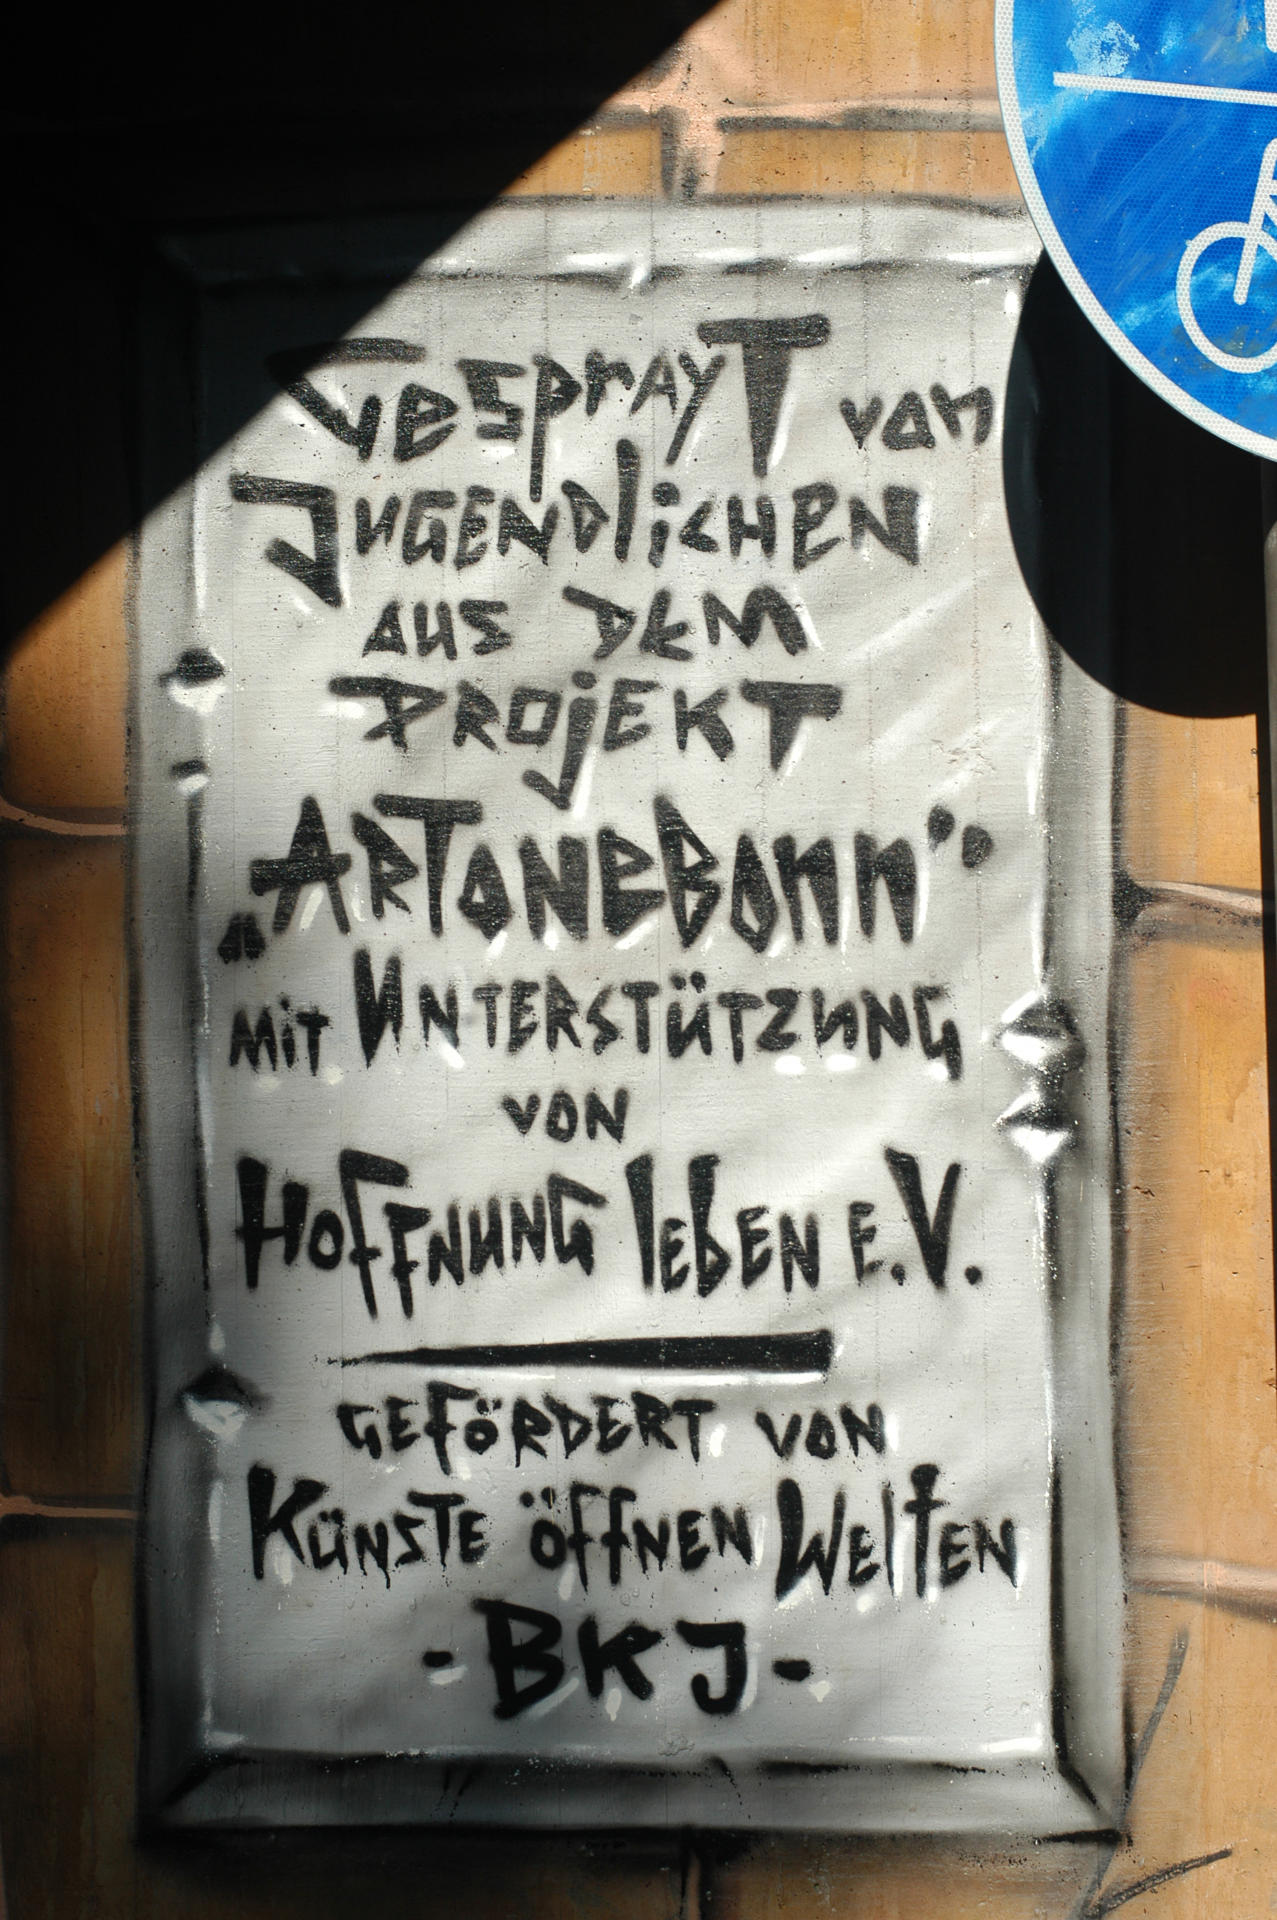 GesprayT von
JUGENDlicHEN
AUS DEM
PROjEKT
„ARTONEBonn"
MiT UNTERSTÜTZUNG
VON
HOFFNUNG lebEN E.V.
GEFÖRDERT VON
KÜNSTE öffNEN WElTEN
- BKJ -